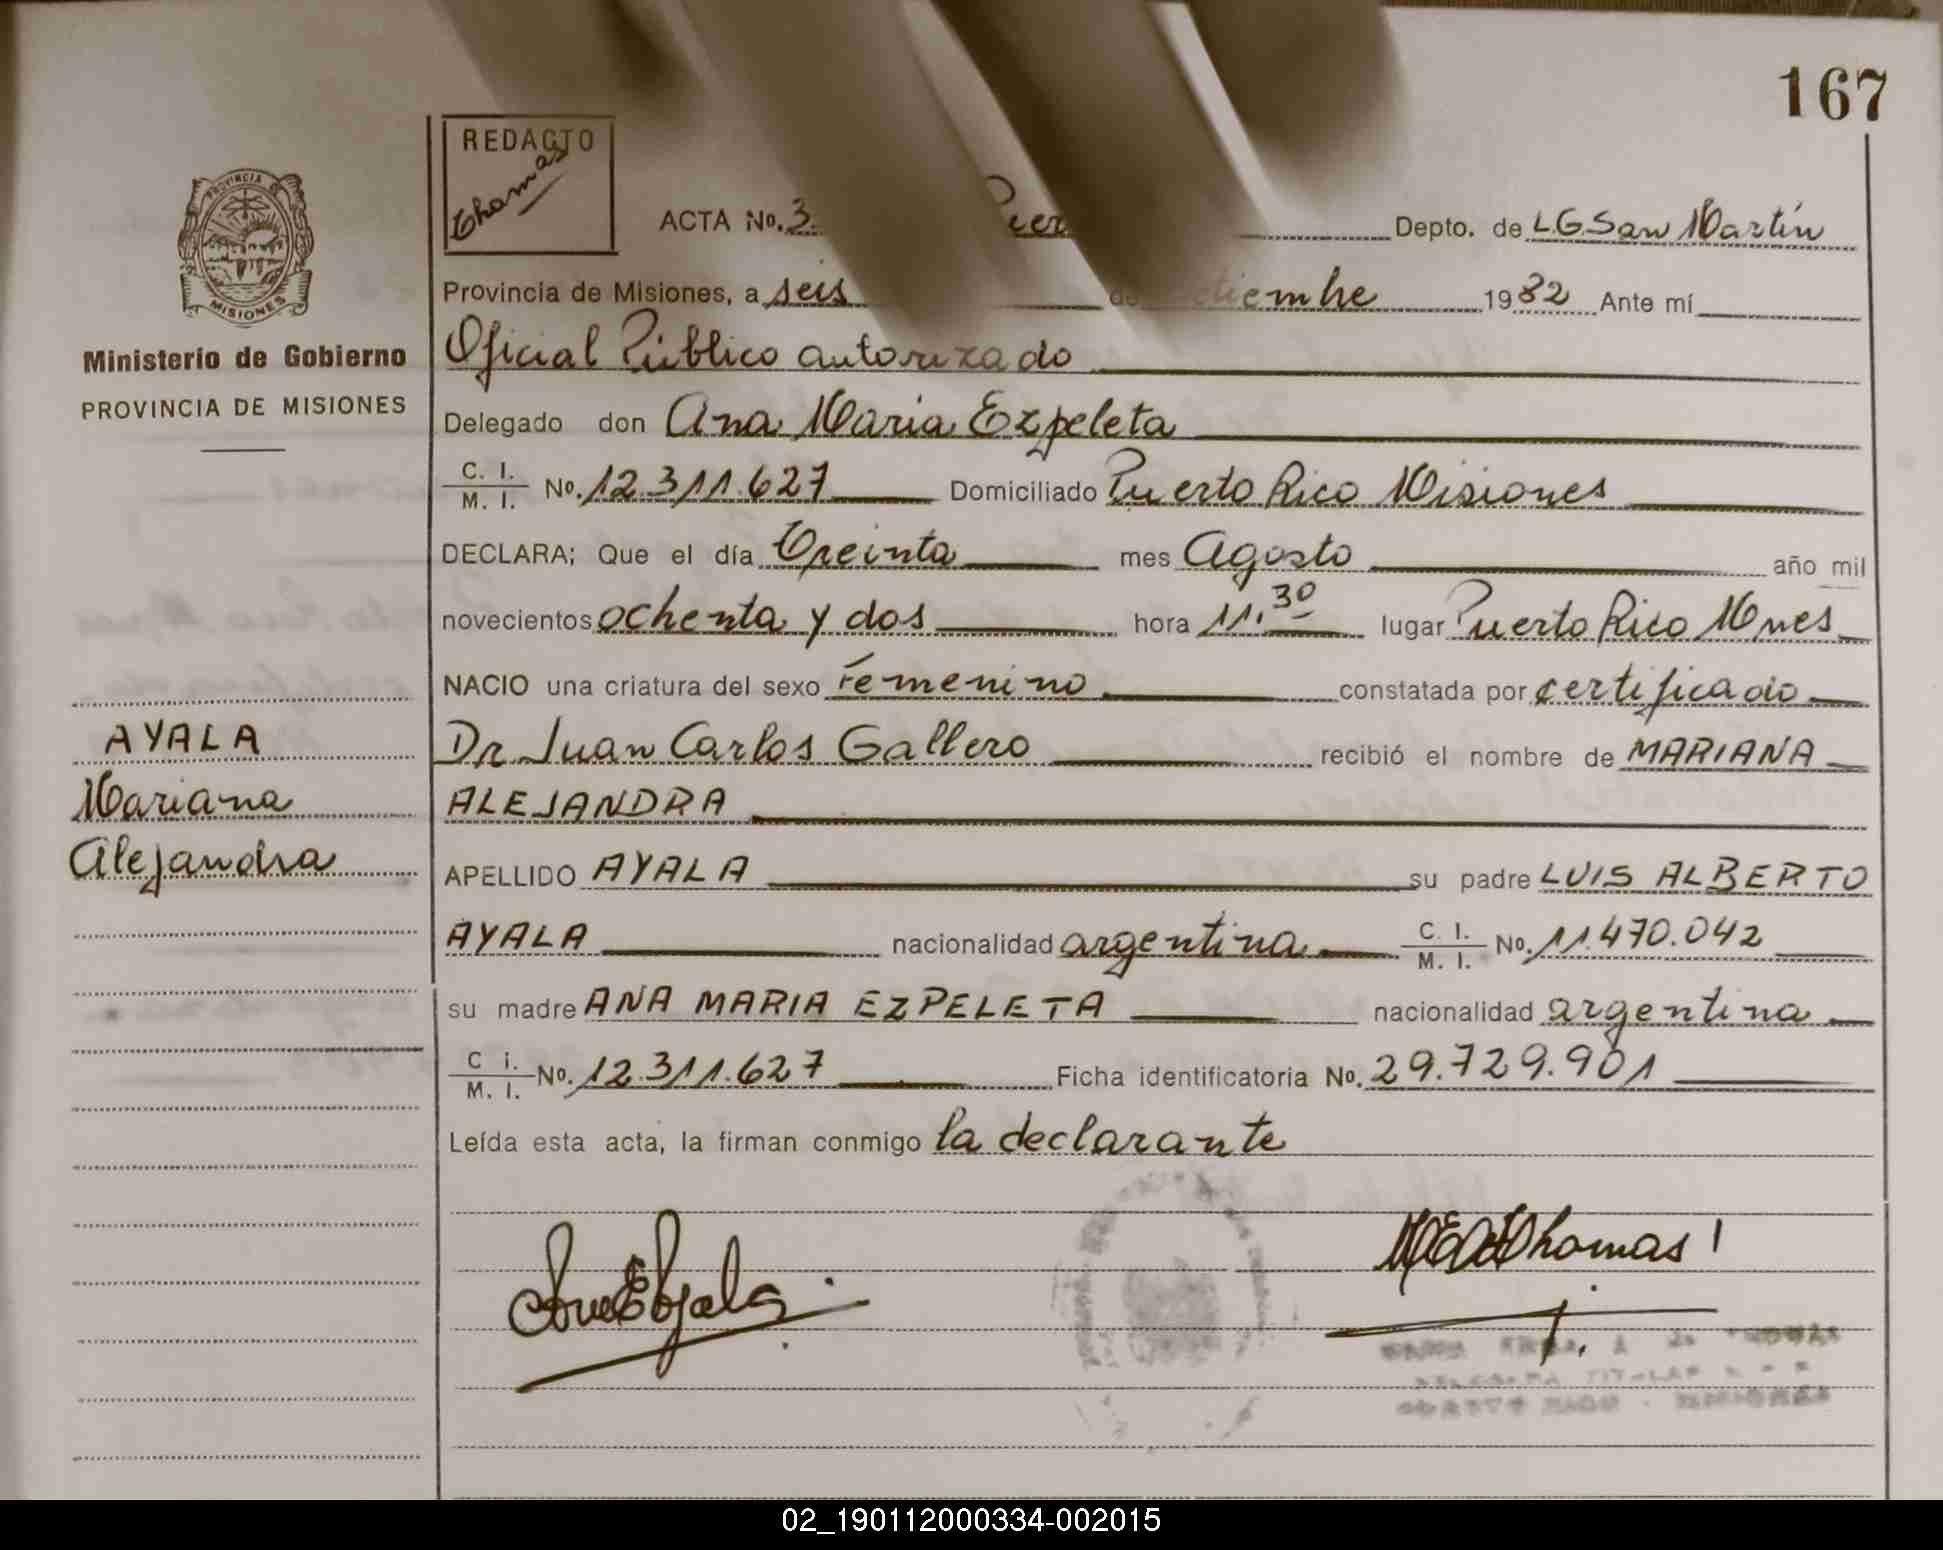 167
REDACTO
Thomas
ACTA No. 3 Depto. de L.G. San Martín
PROVINCIA DE
MISIONES
Provincia de Misiones, a seis de 1982 Ante mí
Ministerio de Gobierno
PROVINCIA DE MISIONES
Oficial Público autorizado
Delegado don Ana Maria Ezpeleta
C. I. / M. I. No. 12.311.627 Domiciliado Puerto Rico Misiones
DECLARA; Que el día Treinta mes Agosto año mil
novecientos ochenta y dos hora 11.30 lugar Puerto Rico Mnes
NACIO una criatura del sexo femenino constatada por certificado
Dr. Juan Carlos Gallero recibió el nombre de MARIANA
ALEJANDRA
AYALA
Mariana
Alejandra
APELLIDO AYALA su padre LUIS ALBERTO
AYALA nacionalidad argentina C. I. / M. I. No. 11.470.042
su madre ANA MARIA EZPELETA nacionalidad argentina
C i. / M. I. No. 12.311.627 Ficha identificatoria No. 29.729.901
Leída esta acta, la firman conmigo la declarante
02_190112000334-002015